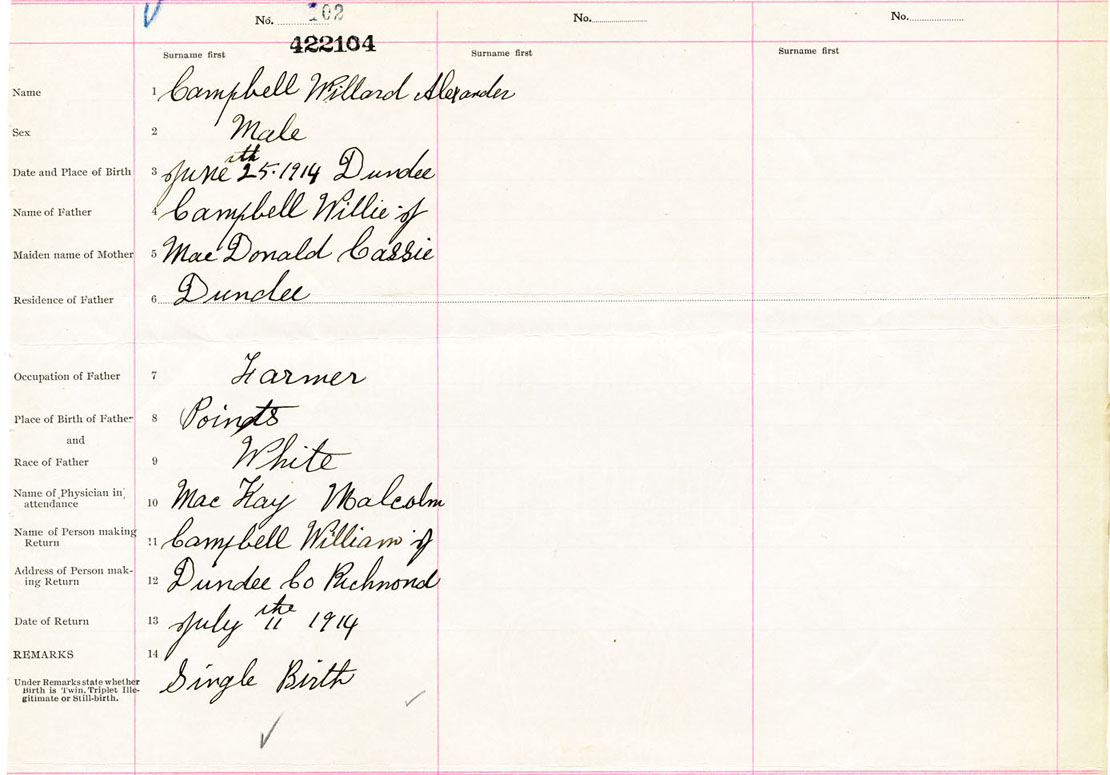 No. 102
No.
No.
422104
Surname first
Surname first
Surname first
Name 1 Campbell Willard Alexander
Sex 2 Male
Date and Place of Birth 3 June 25th 1914 Dundee
Name of Father 4 Campbell Willie J
Maiden name of Mother 5 MacDonald Cassie
Residence of Father 6 Dundee
Occupation of Father 7 Farmer
Place of Birth of Father 8 Points
and
Race of Father 9 White
Name of Physician in attendance 10 Mac Kay Malcolm
Name of Person making Return 11 Campbell William J
Address of Person making Return 12 Dundee Co Richmond
Date of Return 13 July 11the 1914
REMARKS 14
Under Remarks state whether Birth is Twin, Triplet Illegitimate or Still-birth. Single Birth